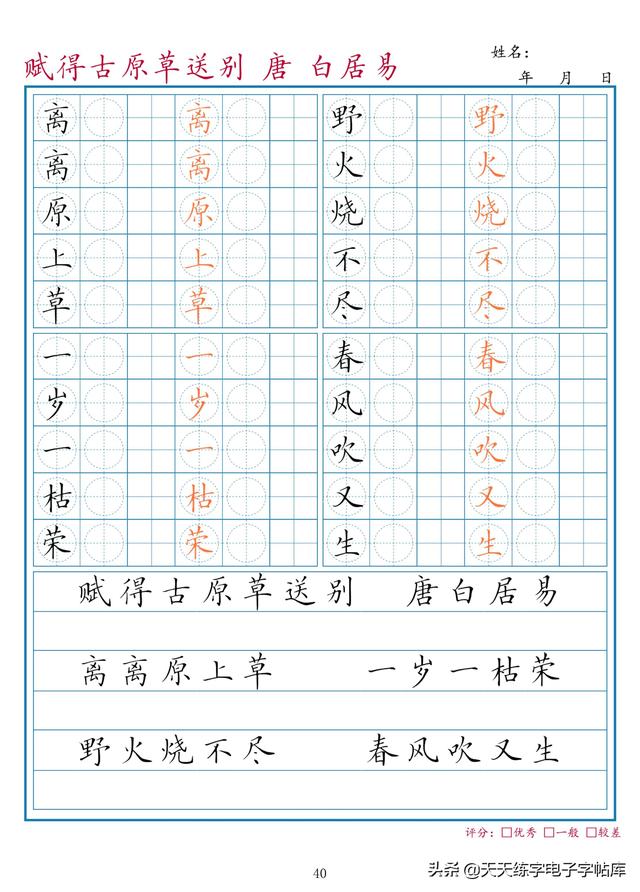 赋得古原草送别 唐 白居易
姓名：
年 月 日
离 离 野 野
离 离 火 火
原 原 烧 烧
上 上 不 不
草 草 尽 尽
一 一 春 春
岁 岁 风 风
一 一 吹 吹
枯 枯 又 又
荣 荣 生 生
赋得古原草送别 唐白居易
离离原上草 一岁一枯荣
野火烧不尽 春风吹又生
评分：□优秀 □一般 □较差
40
头条 @天天练字电子字帖库